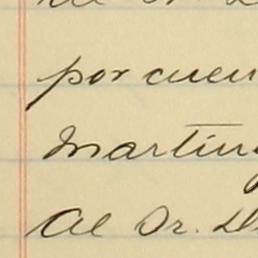 por cuen
Martin
Al Dr. D